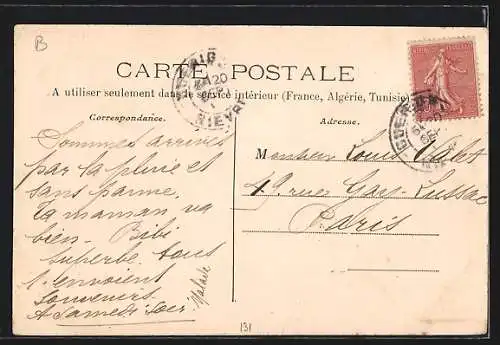 B
CARTE POSTALE
A utiliser seulement dans le service intérieur (France, Algérie, Tunisie)
Correspondance.
Adresse.
Sommes arrivés
par la pluie et
sans panne.
Ta maman va
bien - Bibi
superbe tous
t'envoient
souvenirs
A samedi soir
Monsieur Louis
49 rue Gay-Lussac
Paris
NIEVRE
131